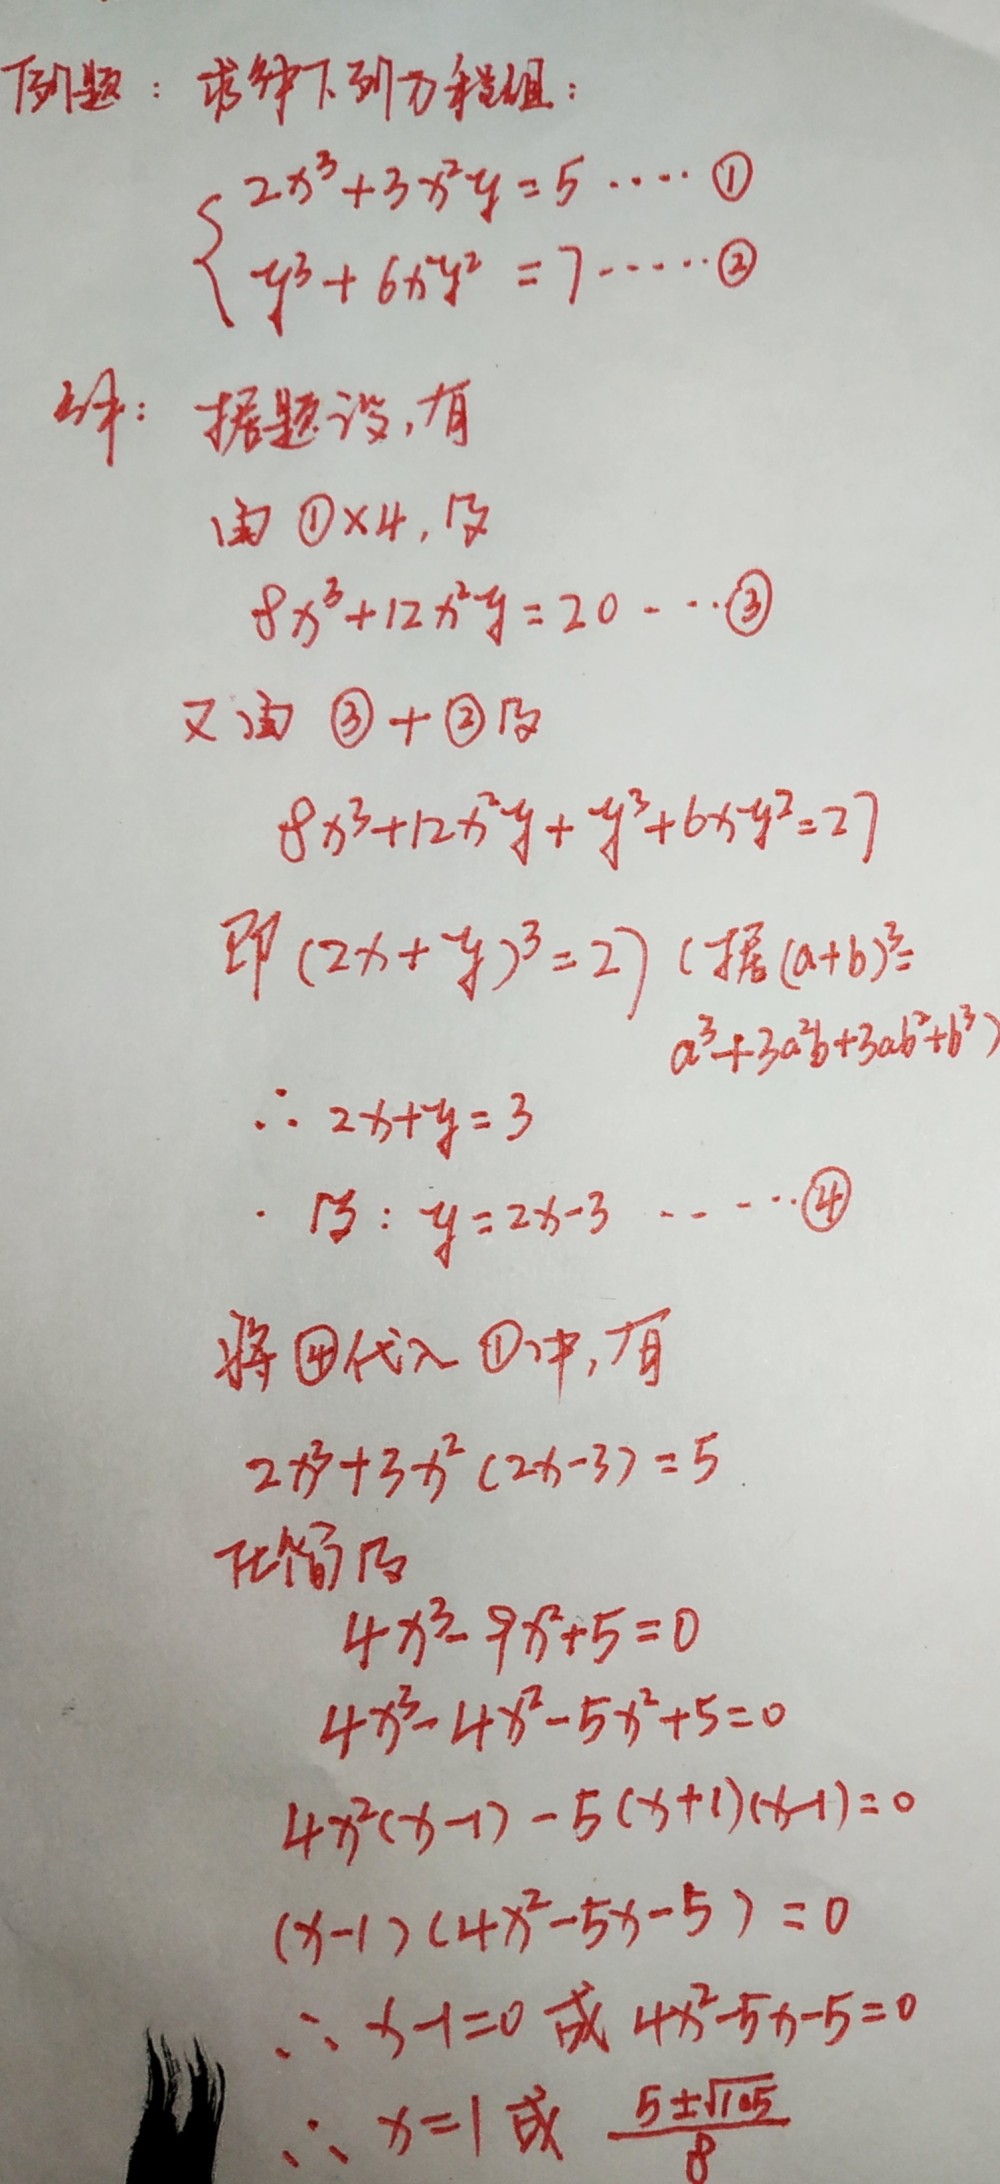 例题：求解下列方程组：
2x³+3x²y=5 ····①
y³+6xy²=7·····②
解：据题设,有
由①×4,得
8x³+12x²y=20 - ··③
又由③+②得
8x³+12x²y+y³+6xy²=27
即(2x+y)³=27 (据(a+b)³=
a³+3a²b+3ab²+b³)
∴ 2x+y=3
· 得：y=2x-3 -- - ··④
将④代入①中,有
2x³+3x²(2x-3)=5
化简得
4x³-9x²+5=0
4x³-4x²-5x²+5=0
4x²(x-1)-5(x+1)(x-1)=0
(x-1)(4x²-5x-5)=0
∴ x-1=0 或 4x²-5x-5=0
∴ x=1 或 (5±√105)/8